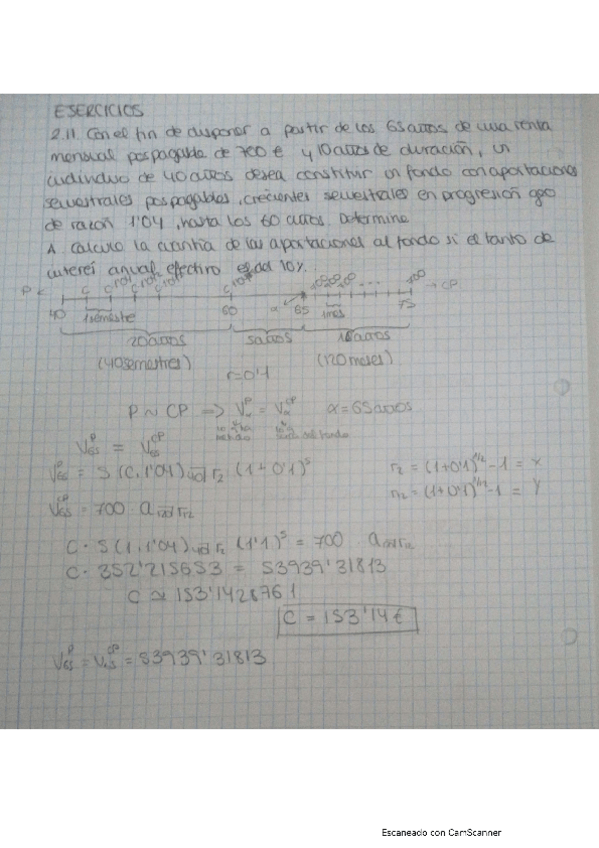 EJERCICIOS
2.11. Con el fin de disponer a partir de los 65 años de una renta
mensual pospagable de 700 € y 10 años de duración, un
individuo de 40 años desea constituir un fondo con aportaciones
semestrales pospagables, crecientes semestrales en progresión geo
de razón 1'04, hasta los 60 años. Determine
A. Calculo la cuantía de las aportaciones al fondo si el tanto de
interés anual efectivo es del 10%.
P C C·1'04 700 700 700 700 → CP
40 1 semestre 60 α 65 1 mes 75
20 años 5 años 10 años
(40 semestres) (120 meses)
r=0'4
P ~ CP ⟹ V_α^P = V_α^CP α = 65 años
V_65^P = V_65^CP
V_65^P = S(C, 1'04)_40 r2 (1+0'1)^5 r2 = (1+0'1)^1/2 - 1 = X
r12 = (1+0'1)^1/12 - 1 = Y
V_65^CP = 700 a_120 r12
C · S(1, 1'04)_40 r2 (1'1)^5 = 700 a_120 r12
C · 352'215653 = 53939'31813
C ≃ 153'1428761
C = 153'14 €
V_65^P = V_65^CP = 53939'31813
Escaneado con CamScanner